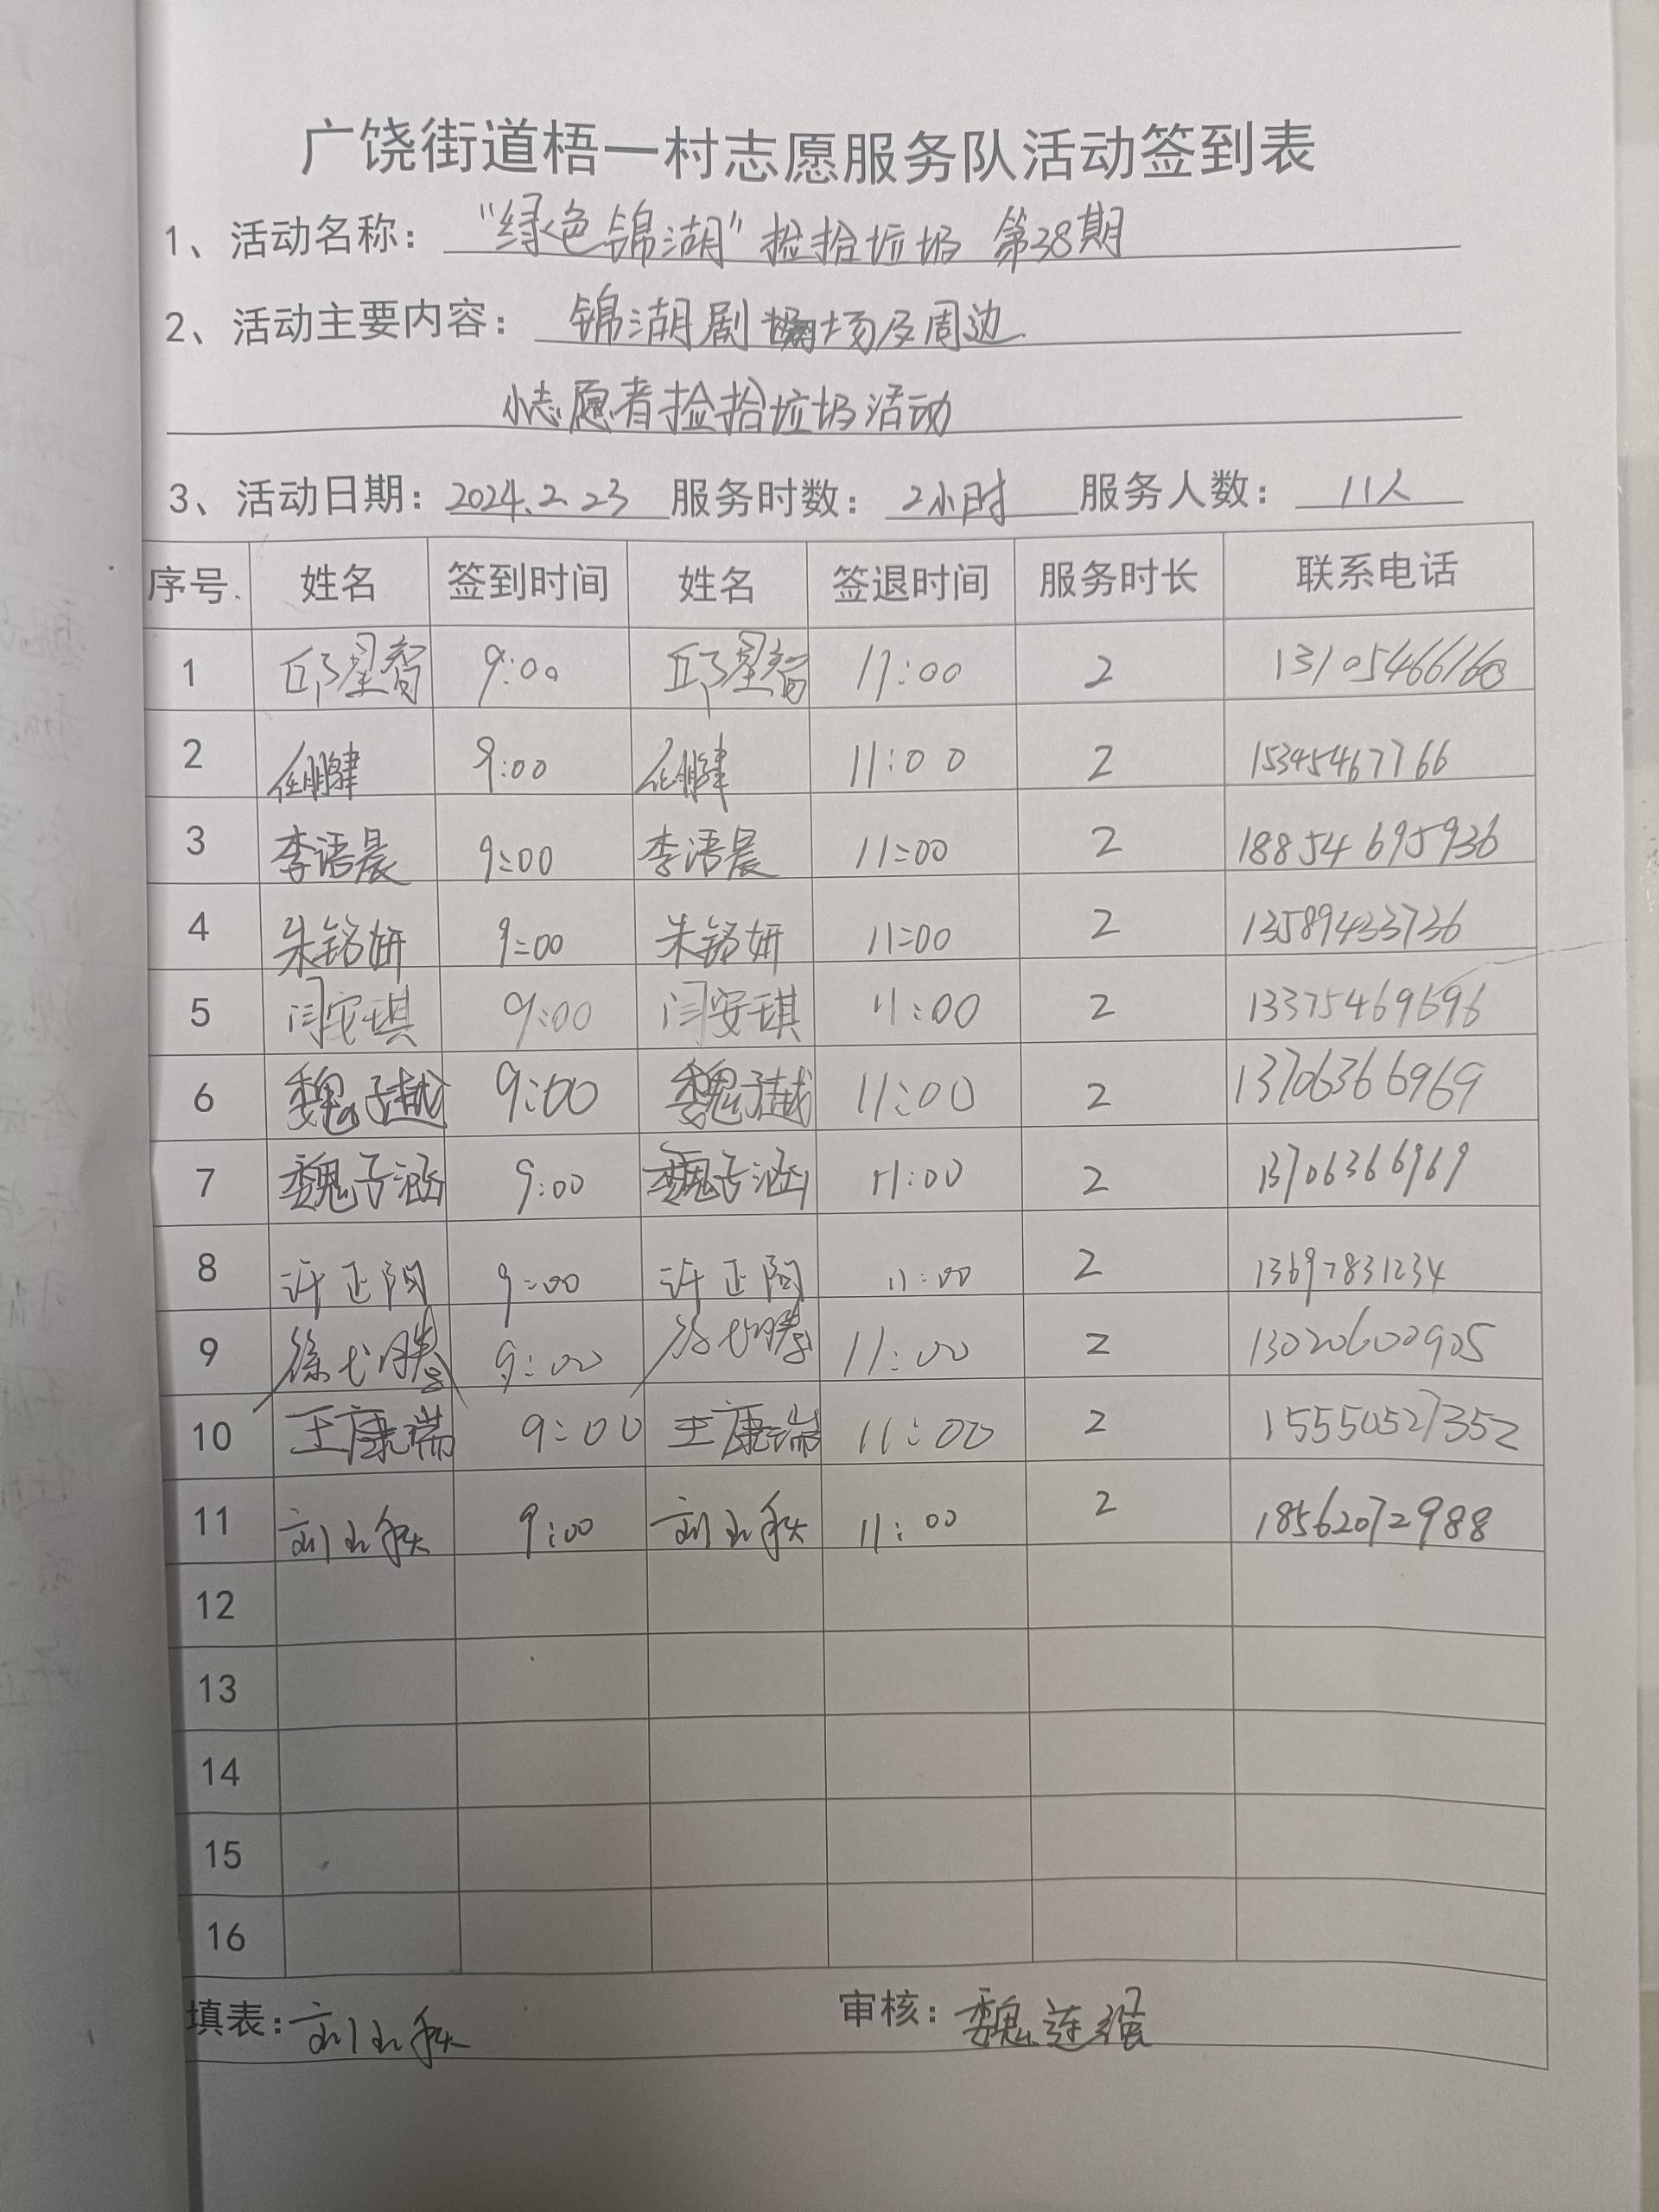 广饶街道梧一村志愿服务队活动签到表
1、活动名称：“绿色锦湖”捡拾垃圾 第38期
2、活动主要内容：锦湖剧场及周边
小志愿者捡拾垃圾活动
3、活动日期：2024.2.23 服务时数：2小时 服务人数：11人
序号 姓名 签到时间 姓名 签退时间 服务时长 联系电话
1 邱星智 9:00 邱星智 11:00 2
2 任鹏肄 9:00 任鹏肄 11:00 2 15345467766
3 李语晨 9:00 李语晨 11:00 2 18854695936
4 朱铭妍 9:00 朱铭妍 11:00 2 13589433736
5 闫安琪 9:00 闫安琪 11:00 2 13375469696
6 魏子越 9:00 魏子越 11:00 2 13706366969
7 魏子涵 9:00 魏子涵 11:00 2 13706366969
8 许正阳 9:00 许正阳 11:00 2 13697831234
9 9:00 11:00 2 13020600905
10 王康瑞 9:00 王康瑞 11:00 2 15550527352
11 9:00 11:00 2 18562072988
12
13
14
15
16
填表： 审核：魏莲强